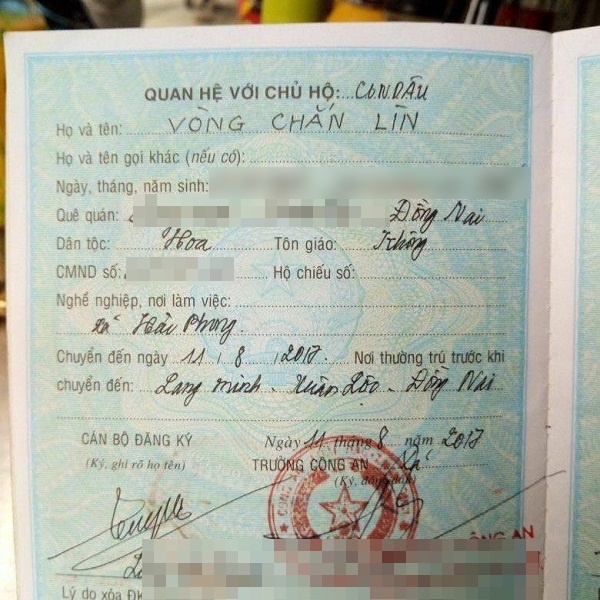 QUAN HỆ VỚI CHỦ HỘ: CON DÂU
Họ và tên: VÒNG CHẮN LÌN
Họ và tên gọi khác (nếu có):
Ngày, tháng, năm sinh:
Quê quán: Đồng Nai
Dân tộc: Hoa Tôn giáo: Không
CMND số: Hộ chiếu số:
Nghề nghiệp, nơi làm việc:
Chuyển đến ngày 11 / 8 / 2017 Nơi thường trú trước khi
chuyển đến: Lang Minh - Xuân Lộc - Đồng Nai
CÁN BỘ ĐĂNG KÝ Ngày 11 tháng 8 năm 2017
(Ký, ghi rõ họ tên) TRƯỞNG CÔNG AN
(Ký, đóng dấu)
Lý do xóa ĐK